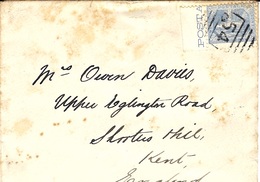 POSTA
754
Mrs Owen Davies,
Upper Eglington Road,
Shooters Hill,
Kent,
England